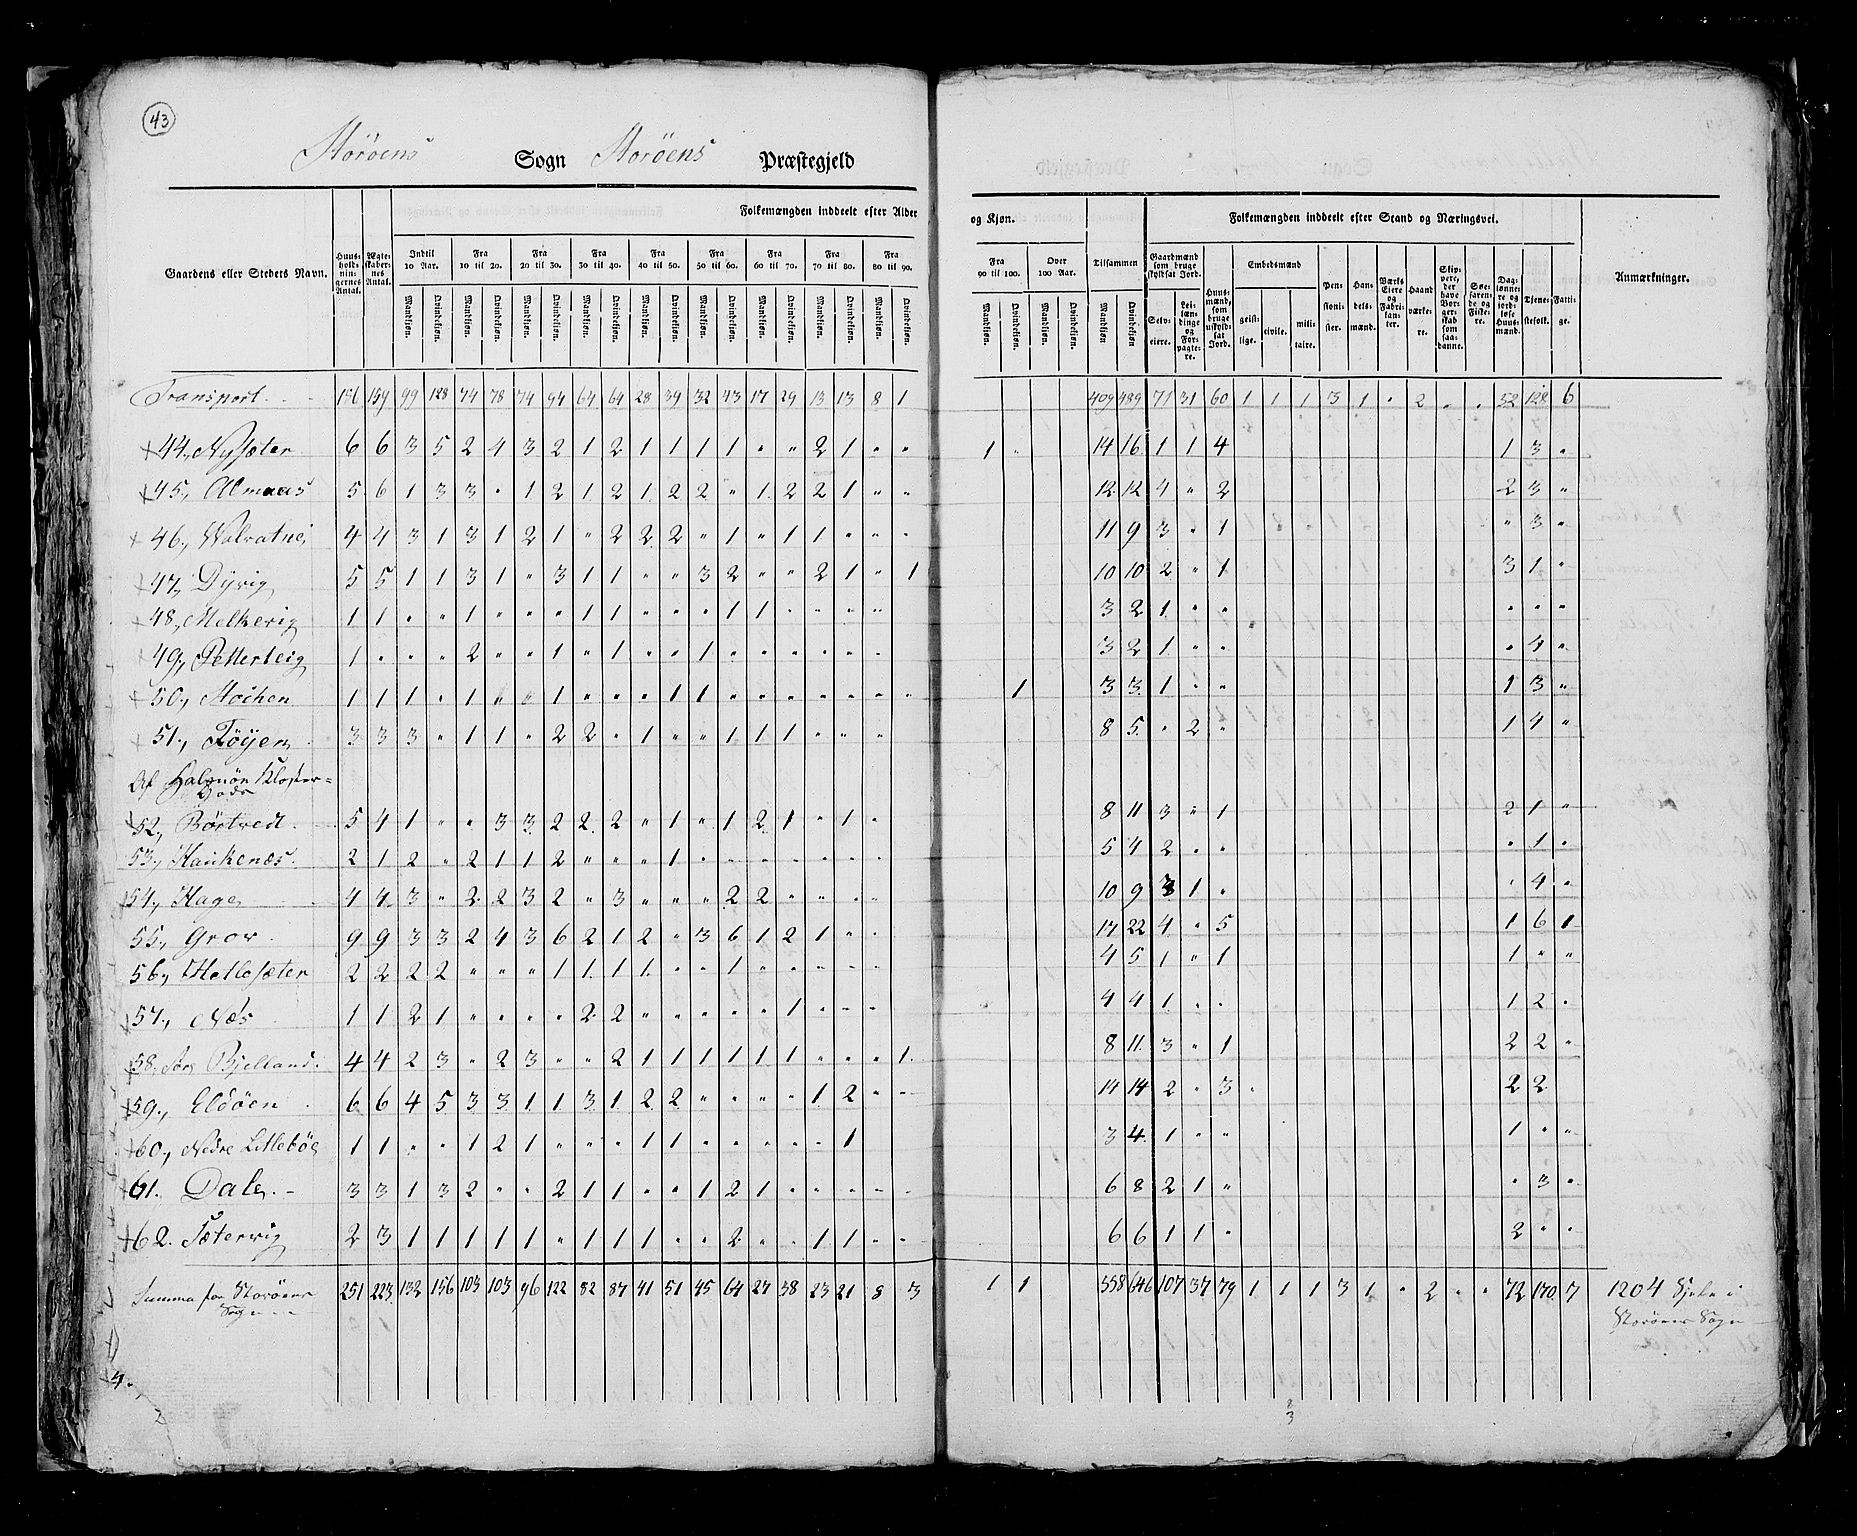 43
Storöens Sogn Storöens Præstegjeld
Gaardens eller Stedets Navn. | Huusholdningernes Antal. | Ægteskabernes Antal. | Folkemængden inddeelt efter Alder og Kjøn. | Tilsammen | Folkemængden inddeelt efter Stand og Næringsvei. | Anmærkninger.
Indtil 10 Aar. | Fra 10 til 20. | Fra 20 til 30. | Fra 30 til 40. | Fra 40 til 50. | Fra 50 til 60. | Fra 60 til 70. | Fra 70 til 80. | Fra 80 til 90. | Fra 90 til 100. | Over 100 Aar.
Mandkiøn. | Qvindekiøn.
Gaardmænd som bruge skyldsat Jord. | Selveiere. | Leilændinge og Forpagtere. | Huusmænd, som bruge uskyldsat Jord. | Embedsmænd | geistlige. | civile. | militaire. | Pensionister. | Handelsmænd. | Værks Eiere og Fabrikanter. | Haandværkere. | Skippere, der have Borgerskab som saadanne. | Søefarende og Fiskere. | Daglønnere og jordløse Huusmænd. | Tjenestefolk. | Fattige.
Transport. 156 159 99 128 74 78 74 94 64 64 28 39 32 43 17 29 13 13 8 1 409 489 71 31 60 1 1 1 3 1 " 2 " " 52 128 6
44., Nysæter 6 6 3 5 2 4 3 2 1 2 1 1 1 1 " " 2 1 " " 1 " 14 16 1 1 4 1 3 "
45., Almaas 5 6 1 3 3 " 1 2 1 2 1 2 2 " 1 2 2 1 " " 12 12 4 " 2 2 3 "
46., Valvatne 4 4 3 1 3 1 2 1 " 2 2 2 " 1 " 1 1 " " " 11 9 3 " 1 " 3 "
47., Dyvig 5 5 1 1 3 1 " 3 1 1 " " 3 2 " " 2 1 " 1 10 10 2 " 1 3 1 "
48., Melkevig 1 1 " " 1 " " " 1 1 " " " 1 1 " " " " 3 2 1 " " " " "
49., Petterteig 1 " " " 2 " " 1 " 1 " " 1 " " " " " " 3 2 1 " " " 4 "
50., Stochen 1 1 1 " 1 " " 1 " " " 1 1 " " " " " " " 1 3 3 1 " " 1 3 "
51., Föyen 3 3 3 " 1 1 " 2 2 " 1 " " 1 1 1 " " " 8 5 " 2 " 1 4 "
Af Halsnöe Kloster=
Gods
52., Börtvedt. 5 4 1 " " 3 3 2 2 2 " 1 " 1 2 1 " 1 " 8 11 3 " 1 2 1 "
53., Haukenæs. 2 1 2 " 2 1 1 2 " " " 1 " " " " " " " 5 4 2 " " " 1 "
54., Hage 4 4 3 " 2 2 3 2 " 3 " " " 2 2 " " " " 10 9 3 1 " " 4 "
55., Grov 9 9 3 3 2 4 3 6 2 1 2 " 3 6 1 2 1 " " 17 22 4 " 5 1 6 1
56., Hetlesæter 2 2 2 2 " " " 1 1 1 1 " " 1 " " " " " 4 5 1 " 1 1 " "
57., Næs 1 1 2 1 " " " " 2 2 " " " " " 1 " " " 4 4 1 " " 1 2 "
58., Bjelland. 4 4 2 3 " 2 3 " " 2 1 1 1 1 1 1 " " " 1 8 11 3 " 1 2 2 "
59., Eldöen 6 6 4 5 3 3 1 1 3 1 2 2 " " " " 1 2 " " 14 14 2 " 3 2 2
60., Nedre Litleböe 1 1 " " 1 2 1 " " " 1 1 " " " " " 1 3 4 1 " " 1 " "
61. Dale 3 3 1 3 2 " " 2 1 1 " " 1 2 1 " " " " " 6 8 2 1 " " 3 "
62. Sætervig 2 3 1 1 1 1 1 " 1 1 1 " " 2 " " 1 1 " " 6 6 1 1 " 2 " "
Summa for Storöens Sogn 251 223 132 156 103 103 96 122 82 87 41 51 45 64 27 38 23 21 8 3 1 1 558 646 107 37 79 1 1 1 3 1 " 2 " " 72 170 7 1204 Sjele i
Storöens Sogn